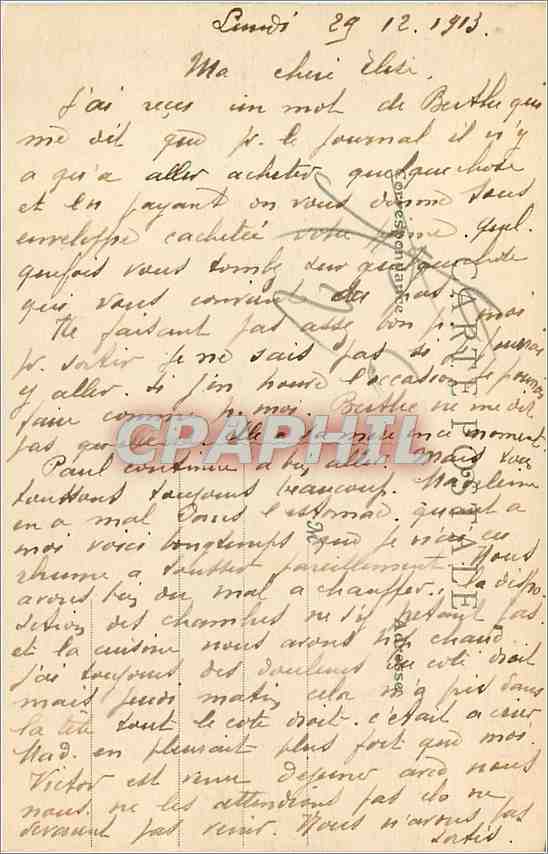 Lundi 29 12. 1913.
Ma cheri Elise.
J'ai reçus un mot de Berthe qui
me dit que pr. le journal il n'y
a qu'a aller acheter quelque chose
et en payant on vous donne sous
enveloppe cachetée votre prime. quel-
quefois vous tombe sur quelque chose
qui vous convient ou pas.
Ne faisant pas asse bon pr. moi
pr. sortir je ne sais pas si je pourrai
y aller. si j'en trouve l'occasion je pourrai
faire comme pr. moi. Berthe ne me dit
pas Elle a sa mère en ce moment
Paul continue a bien aller. Mais tou
toussons toujours beaucoup. Madeleine
en a mal dans l'estomac. quant a
moi voici longtemps que je n'ai eu
rhume a tousser pareillement. Nous
avons bien du mal a chauffer. la dispo-
sition des chambres ne s'y prêtant pas.
et la cuisine nous avons chaud
j'ai toujours des douleurs du coté droit
mais jeudi matin cela m'a pris dans
la tête tout le coté droit. c'était a crier
Mad. en pleurait plus fort que moi.
Victor est venu dejeuner avec nous
nous ne les attendions pas ils ne
devaient pas venir. Nous n'avons pas
sortis.
Correspondance
CARTE POSTALE
Adresse
CPAPHIL